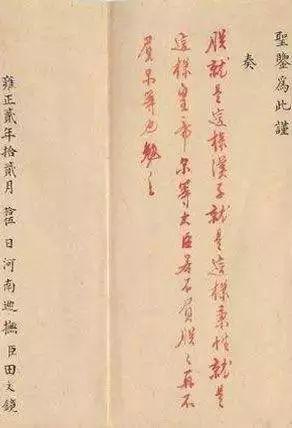 聖鑒爲此謹
奏
朕就是這樣漢子就是這樣秉性就是
這樣皇帝尔等大臣若不負朕朕再不
負尔等也勉之
雍正貳年拾貳月 拾伍 日河南巡撫臣田文鏡